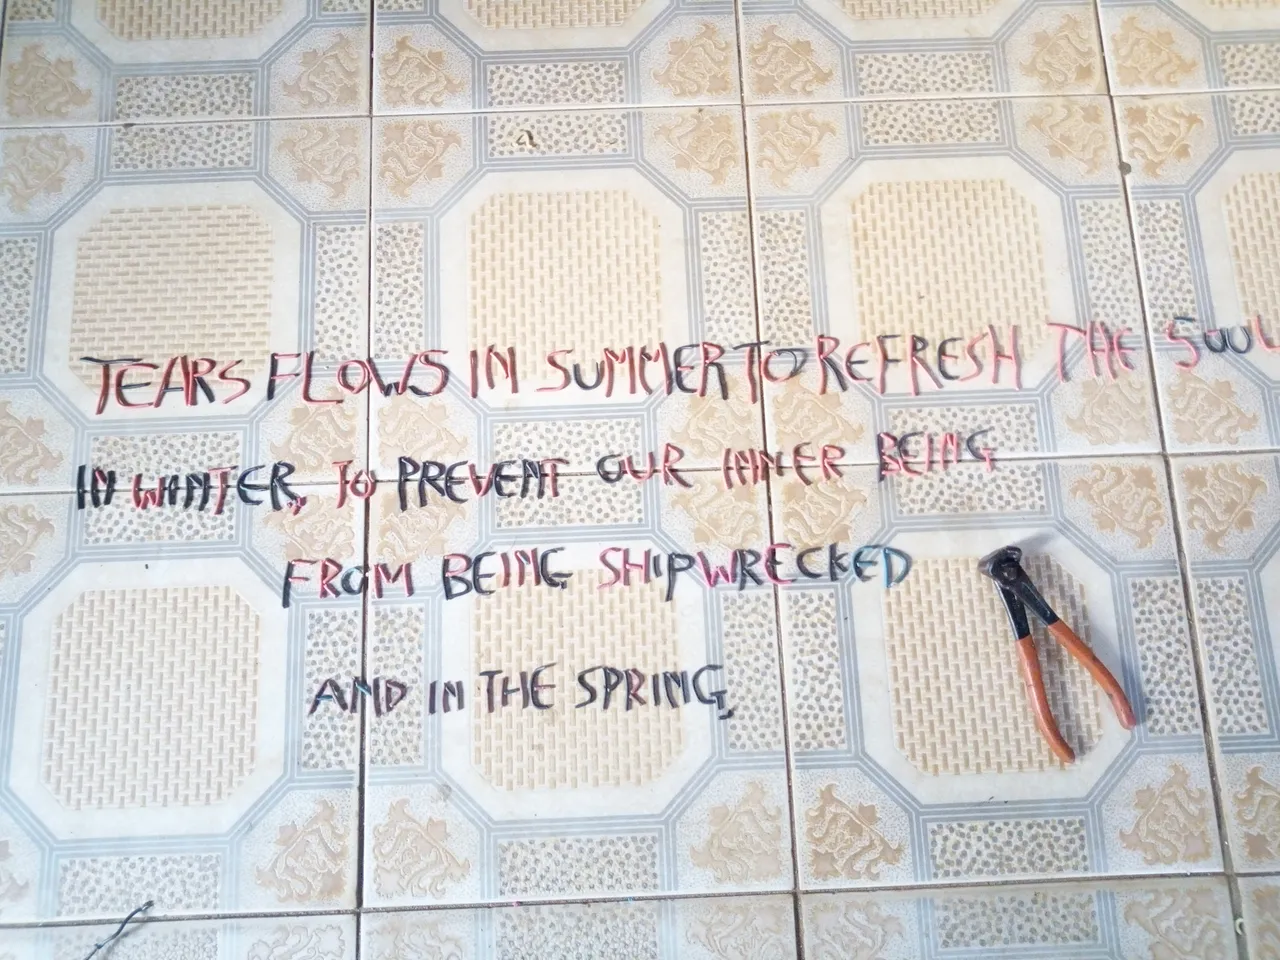 TEARS FLOWS IN SUMMER TO REFRESH THE SOUL
IN WINTER, TO PREVENT OUR INNER BEING
FROM BEING SHIPWRECKED
AND IN THE SPRING,